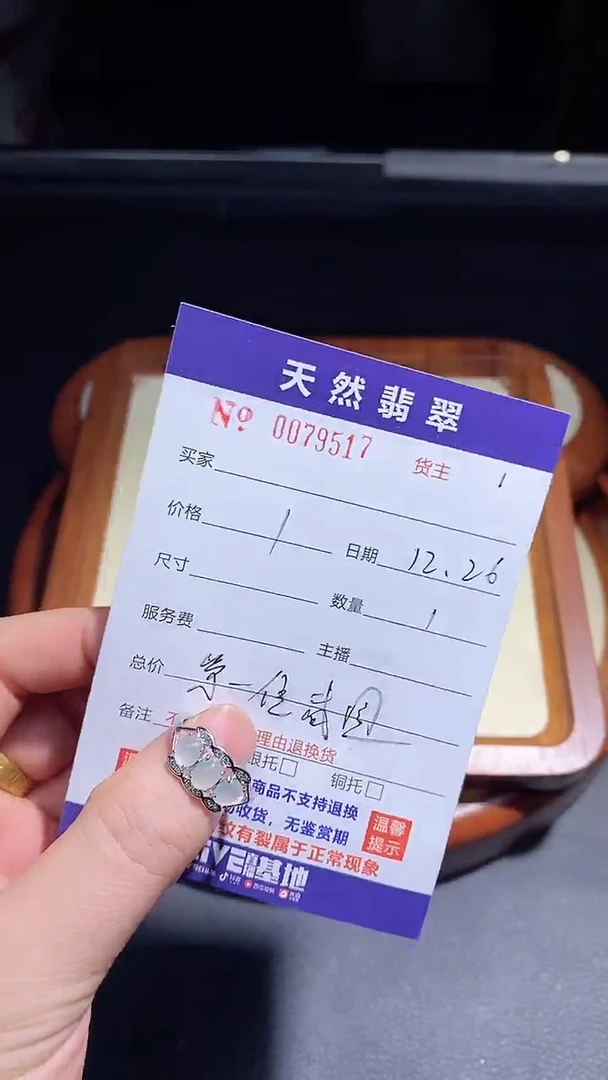 天然翡翠
Nº 0079517 货主 1
买家
价格 1 日期 12.26
尺寸 数量 1
服务费 主播
总价 第一位
备注 不 理由退换货
银托□ 铜托□
商品不支持退换
收货，无鉴赏期
纹有裂属于正常现象
温馨
提示
基地